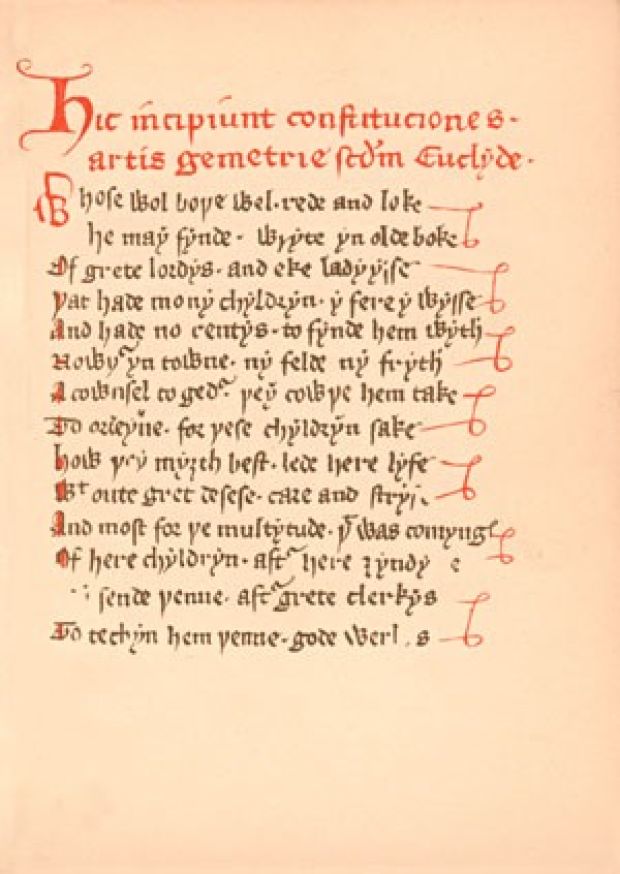 Hic incipiunt constituciones.
artis gemetrie scdm Euclyde.
Whose wol boþe wel. rede and loke
he may fynde. wryte yn olde boke
Of grete lordys. and eke ladyysse
þat hade mony chyldryn. y fere y wysse
And hade no rentys. to fynde hem wyth
Nowþr yn towne. ny felde ny fryth
A cownsel to gedr. þey cowþe hem take
To ordeyne. for þese chyldryn sake
how þey myȝth best. lede here lyfe
Wt oute gret desese. care and
And most for þe multytude. þt was comyng
Of here chyldryn. aftr here
sende þenne. aftr grete clerkys
To techyn hem þenne. gode